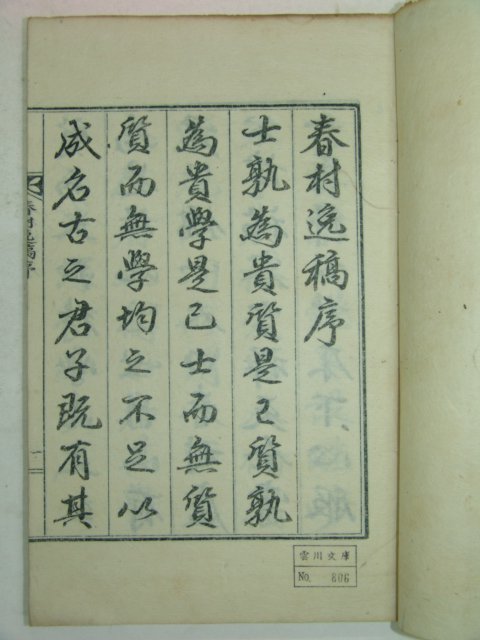 春村逸稿序
士孰為貴質是已質孰
為貴學是已士而無質
質而無學均之不足以
成名古之君子既有其
春村逸稿序
一
雲川文庫
No. 806